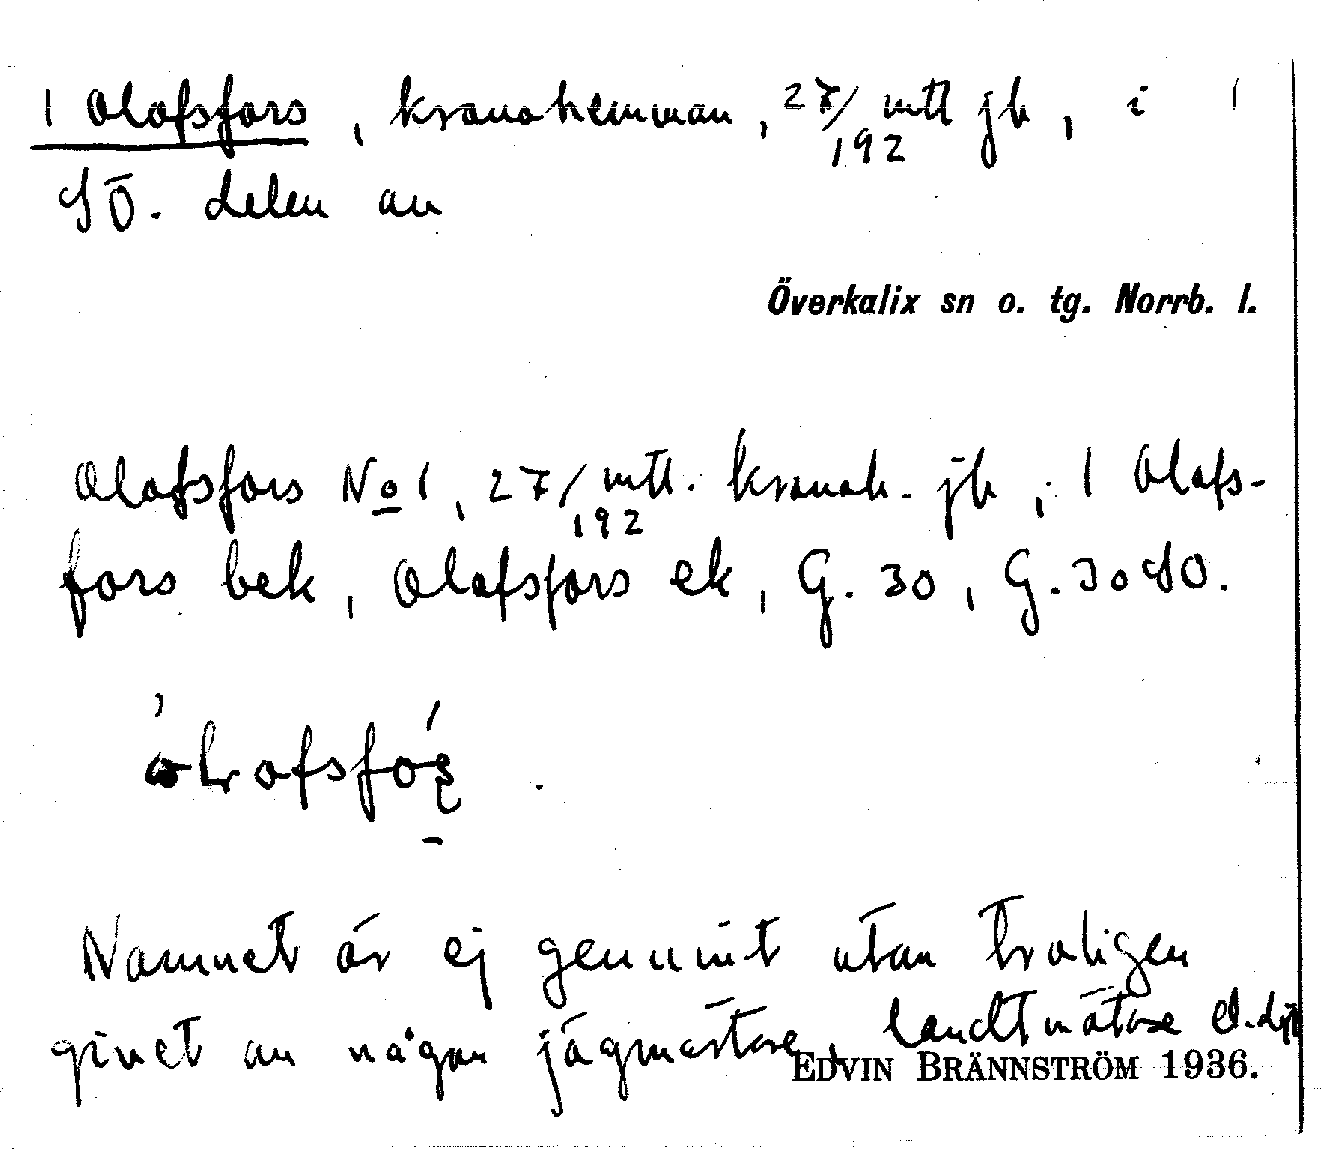 1 Olofsfors, kronohemman, 27/192 mtl jb, i 1
SÖ. delen av
Överkalix sn o. tg. Norrb. l.
Olofsfors No 1, 27/192 mtl. kronoh. jb, 1 Olofs-
fors bek, Olofsfors ek, G. 30, G. 30 SO.
Namnet är ej genuint utan troligen
givet av någon jägmästare, landtmätare e.dyl
EDVIN BRÄNNSTRÖM 1936.